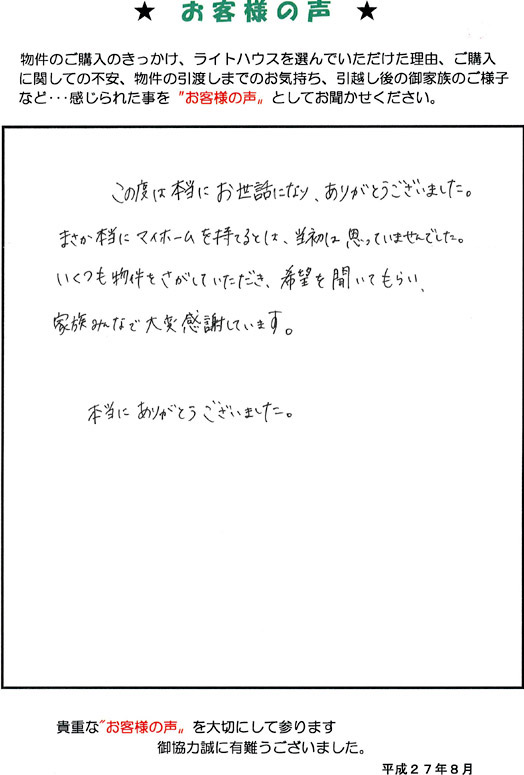 ★ お客様の声 ★
物件のご購入のきっかけ、ライトハウスを選んでいただけた理由、ご購入
に関しての不安、物件の引渡しまでのお気持ち、引越し後の御家族のご様子
など･･･感じられた事を〝お客様の声〟としてお聞かせください。
この度は本当にお世話になり、ありがとうございました。
まさか本当にマイホームを持てるとは、当初は思っていませんでした。
いくつも物件をさがしていただき、希望を聞いてもらい、
家族みんなで大変感謝しています。
本当にありがとうございました。
貴重な〝お客様の声〟を大切にして参ります
御協力誠に有難うございました。
平成２７年８月